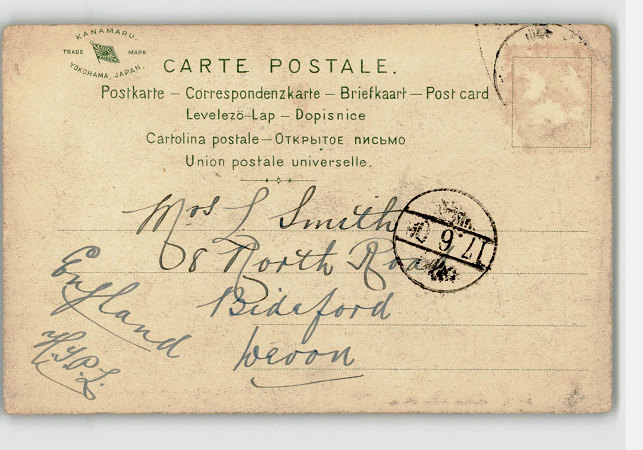 KANAMARU.
TRADE MARK
YOKOHAMA, JAPAN.
CARTE POSTALE.
Postkarte – Correspondenzkarte – Briefkaart – Post card
Levelezö-Lap – Dopisnice
Cartolina postale – Открытое письмо
Union postale universelle.
Mrs L Smith
8 North Road
Bideford
Devon
England
17.6